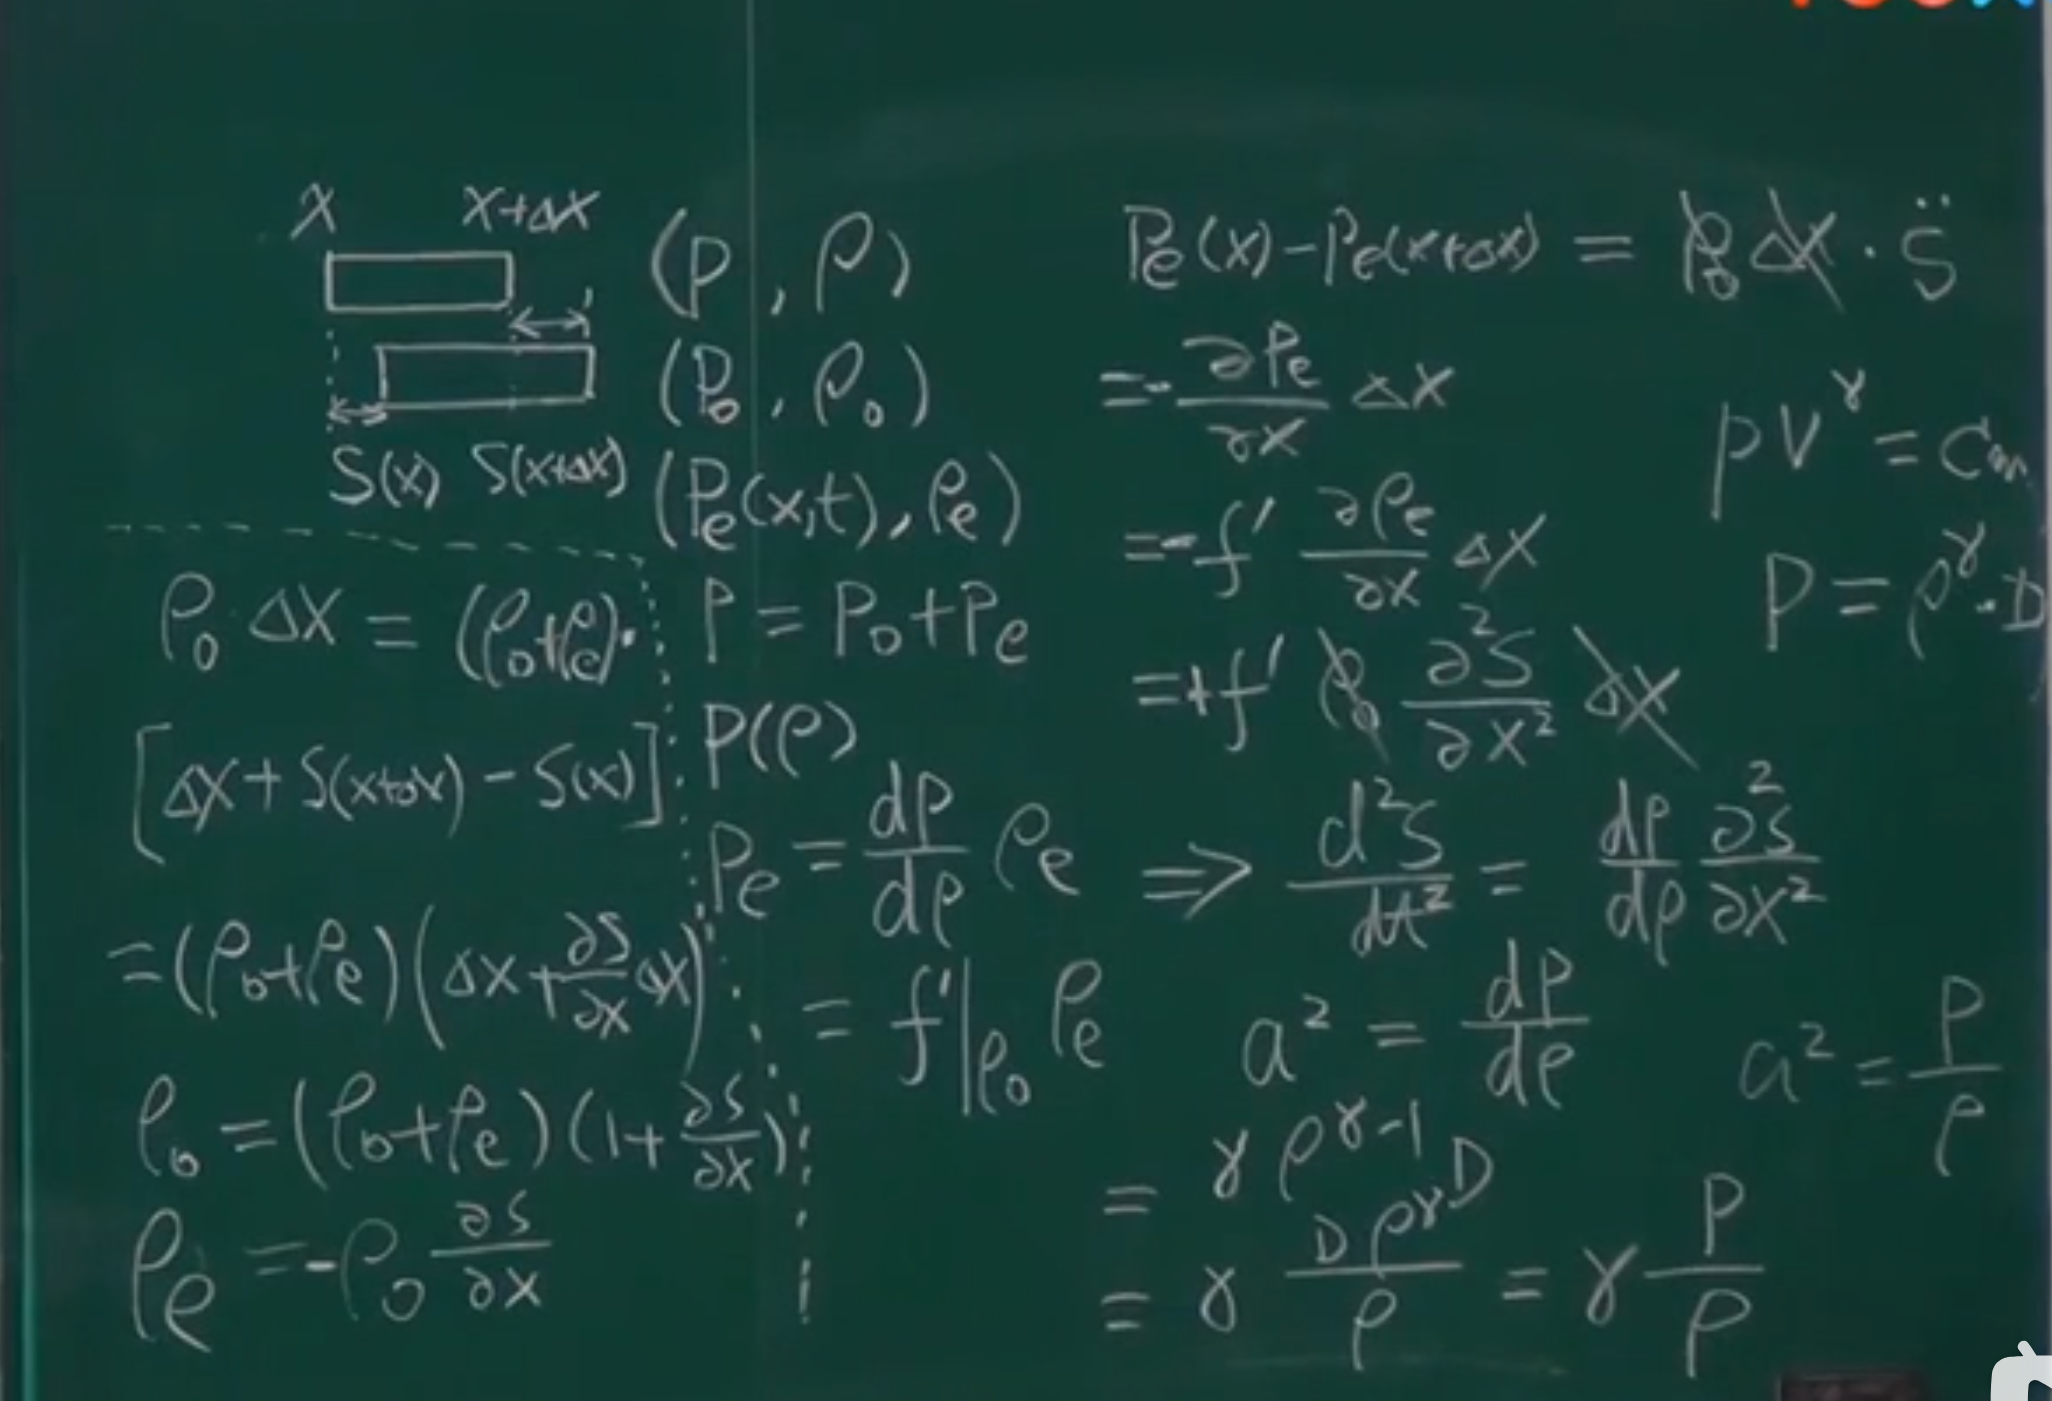 x x+Δx (p, ρ)
(P₀, ρ₀)
S(x) S(x+Δx) (Pₑ(x,t), ρₑ)
ρ₀ Δx = (ρ₀+ρₑ)·
[Δx + S(x+Δx) − S(x)]
= (ρ₀+ρₑ)(Δx + ∂S/∂x Δx)
ρ₀ = (ρ₀+ρₑ)(1+ ∂S/∂x)
ρₑ = −ρ₀ ∂S/∂x
P = P₀+Pₑ
P(ρ)
Pₑ = dp/dρ ρₑ
= f'|ρ₀ ρₑ
Pₑ(x) − Pₑ(x+Δx) = ρ₀ Δx · S̈
= − ∂Pₑ/∂x Δx
= − f' ∂ρₑ/∂x Δx
= + f' ρ₀ ∂²S/∂x² Δx
⇒ d²S/dt² = dp/dρ ∂²S/∂x²
a² = dp/dρ
= γ ρ^(γ−1) D
= γ Dρ^γ/ρ = γ P/ρ
pV^γ = Con
P = ρ^γ · D
a² = P/ρ